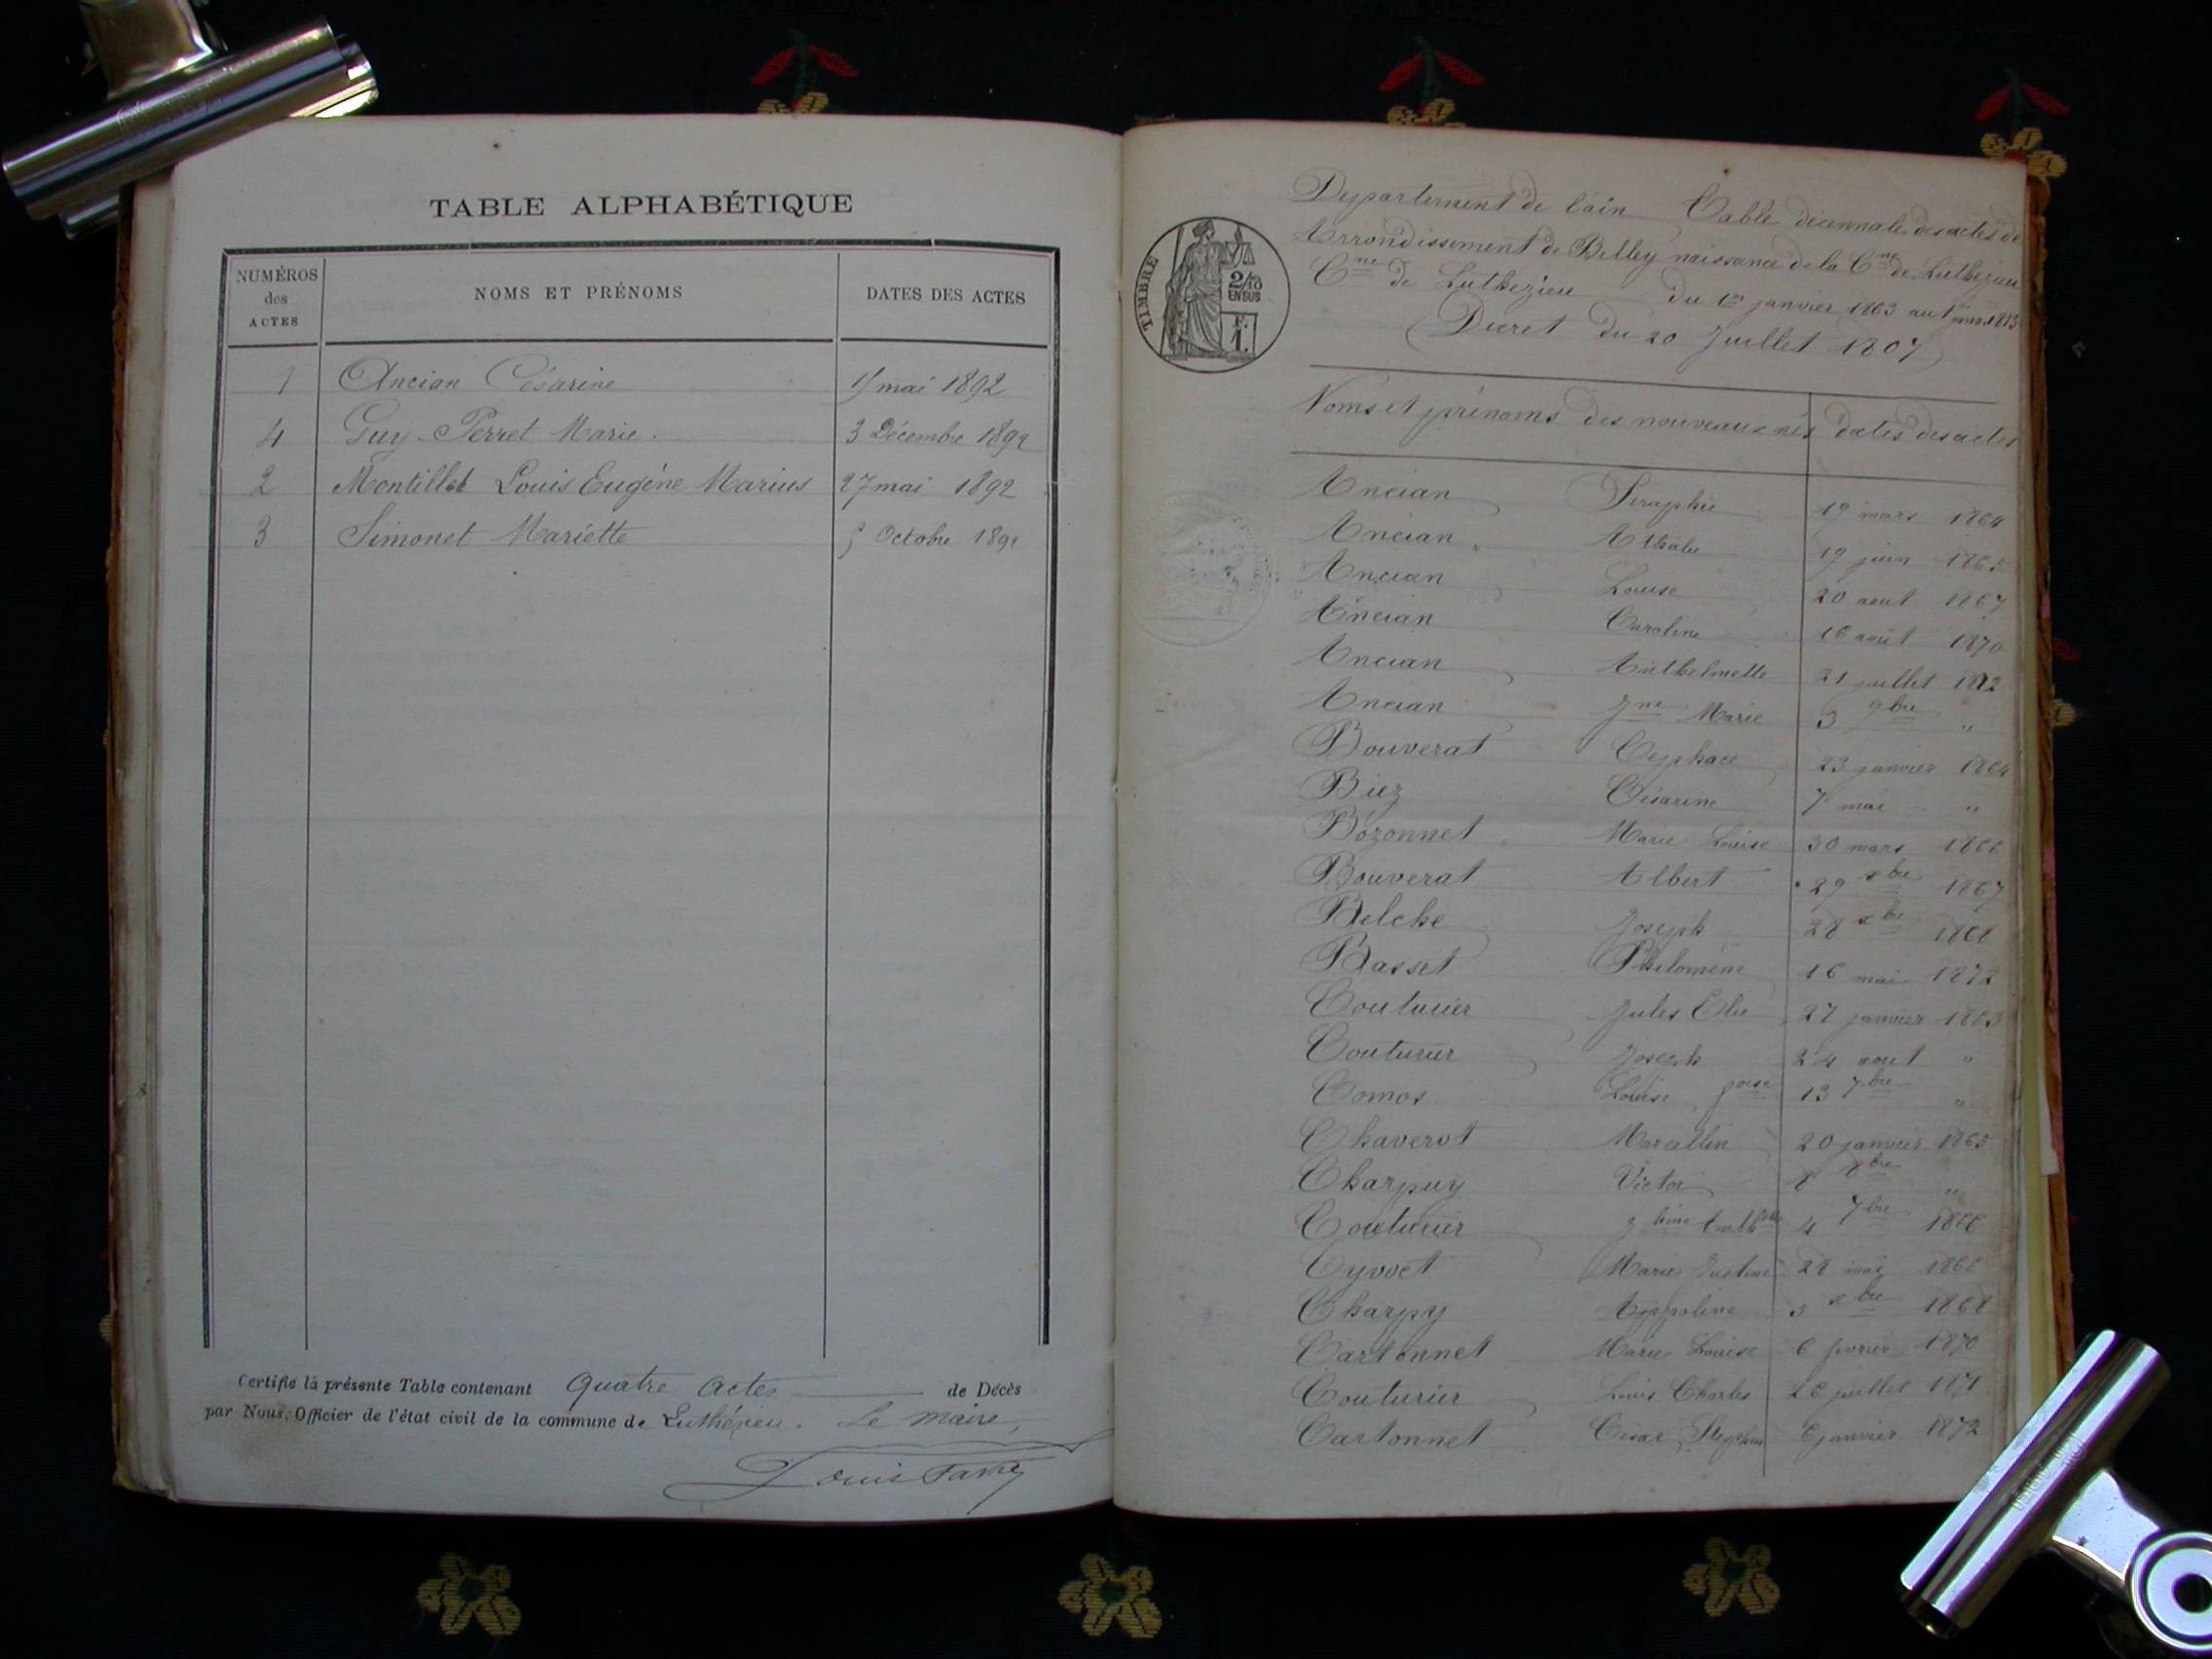 TABLE ALPHABÉTIQUE
NUMÉROS des ACTES NOMS ET PRÉNOMS DATES DES ACTES
1 Ancian Césarine mai 1892
4 Guy-Perret Marie. 3 Décembre 1892
2 Montillet Louis Eugène Marius 27 mai 1892
3 Simonet Mariette Octobre 1892
Certifié la présente Table contenant quatre actes de Décès
par Nous, Officier de l'état civil de la commune de Luthézieu. Le maire,
Louis Favry
TIMBRE
2/10
EN SUS
F.
1.
Département de l'ain Table décennale des actes de
Arrondissement de Belley naissance de la Cne de Luthezieu
Cne de Luthezieu du 1er janvier 1863 au 1er janv. 1873
(Décret du 20 Juillet 1807)
Noms et prénoms des nouveaux nés dates des actes
Ancian Séraphie 19 mars 1864
Ancian 19 juin 1865
Ancian Louise 20 aout 1867
Ancian Caroline 16 août 1870
Ancian Anthelmette 21 juillet 1872
Ancian Jne Marie 3 9bre "
Bouverat Cyphace 23 janvier 1864
Biez Césarine 7 mai "
Bozonnet Marie Louise 30 mars 1866
Bouverat Albert 29 xbre 1867
Belche Joseph 28 xbre 1868
Basset Philomène 16 mai 1872
Couturier Jules Elie 27 janvier 1863
Couturier Joseph 24 aout "
Comos Louise foise 13 7bre "
Chaverot Marcellin 20 janvier 1865
Charpuy Victor 8 8bre "
Couturier 4 7bre 1866
Cyvoct Marie Justine 28 mai 1868
Charpy Appoline 5 xbre 1868
Cartonnet Marie Louise 6 fevrier 1870
Couturier Louis Charles 26 juillet 1871
Cartonnet César Stephane 6 janvier 1872